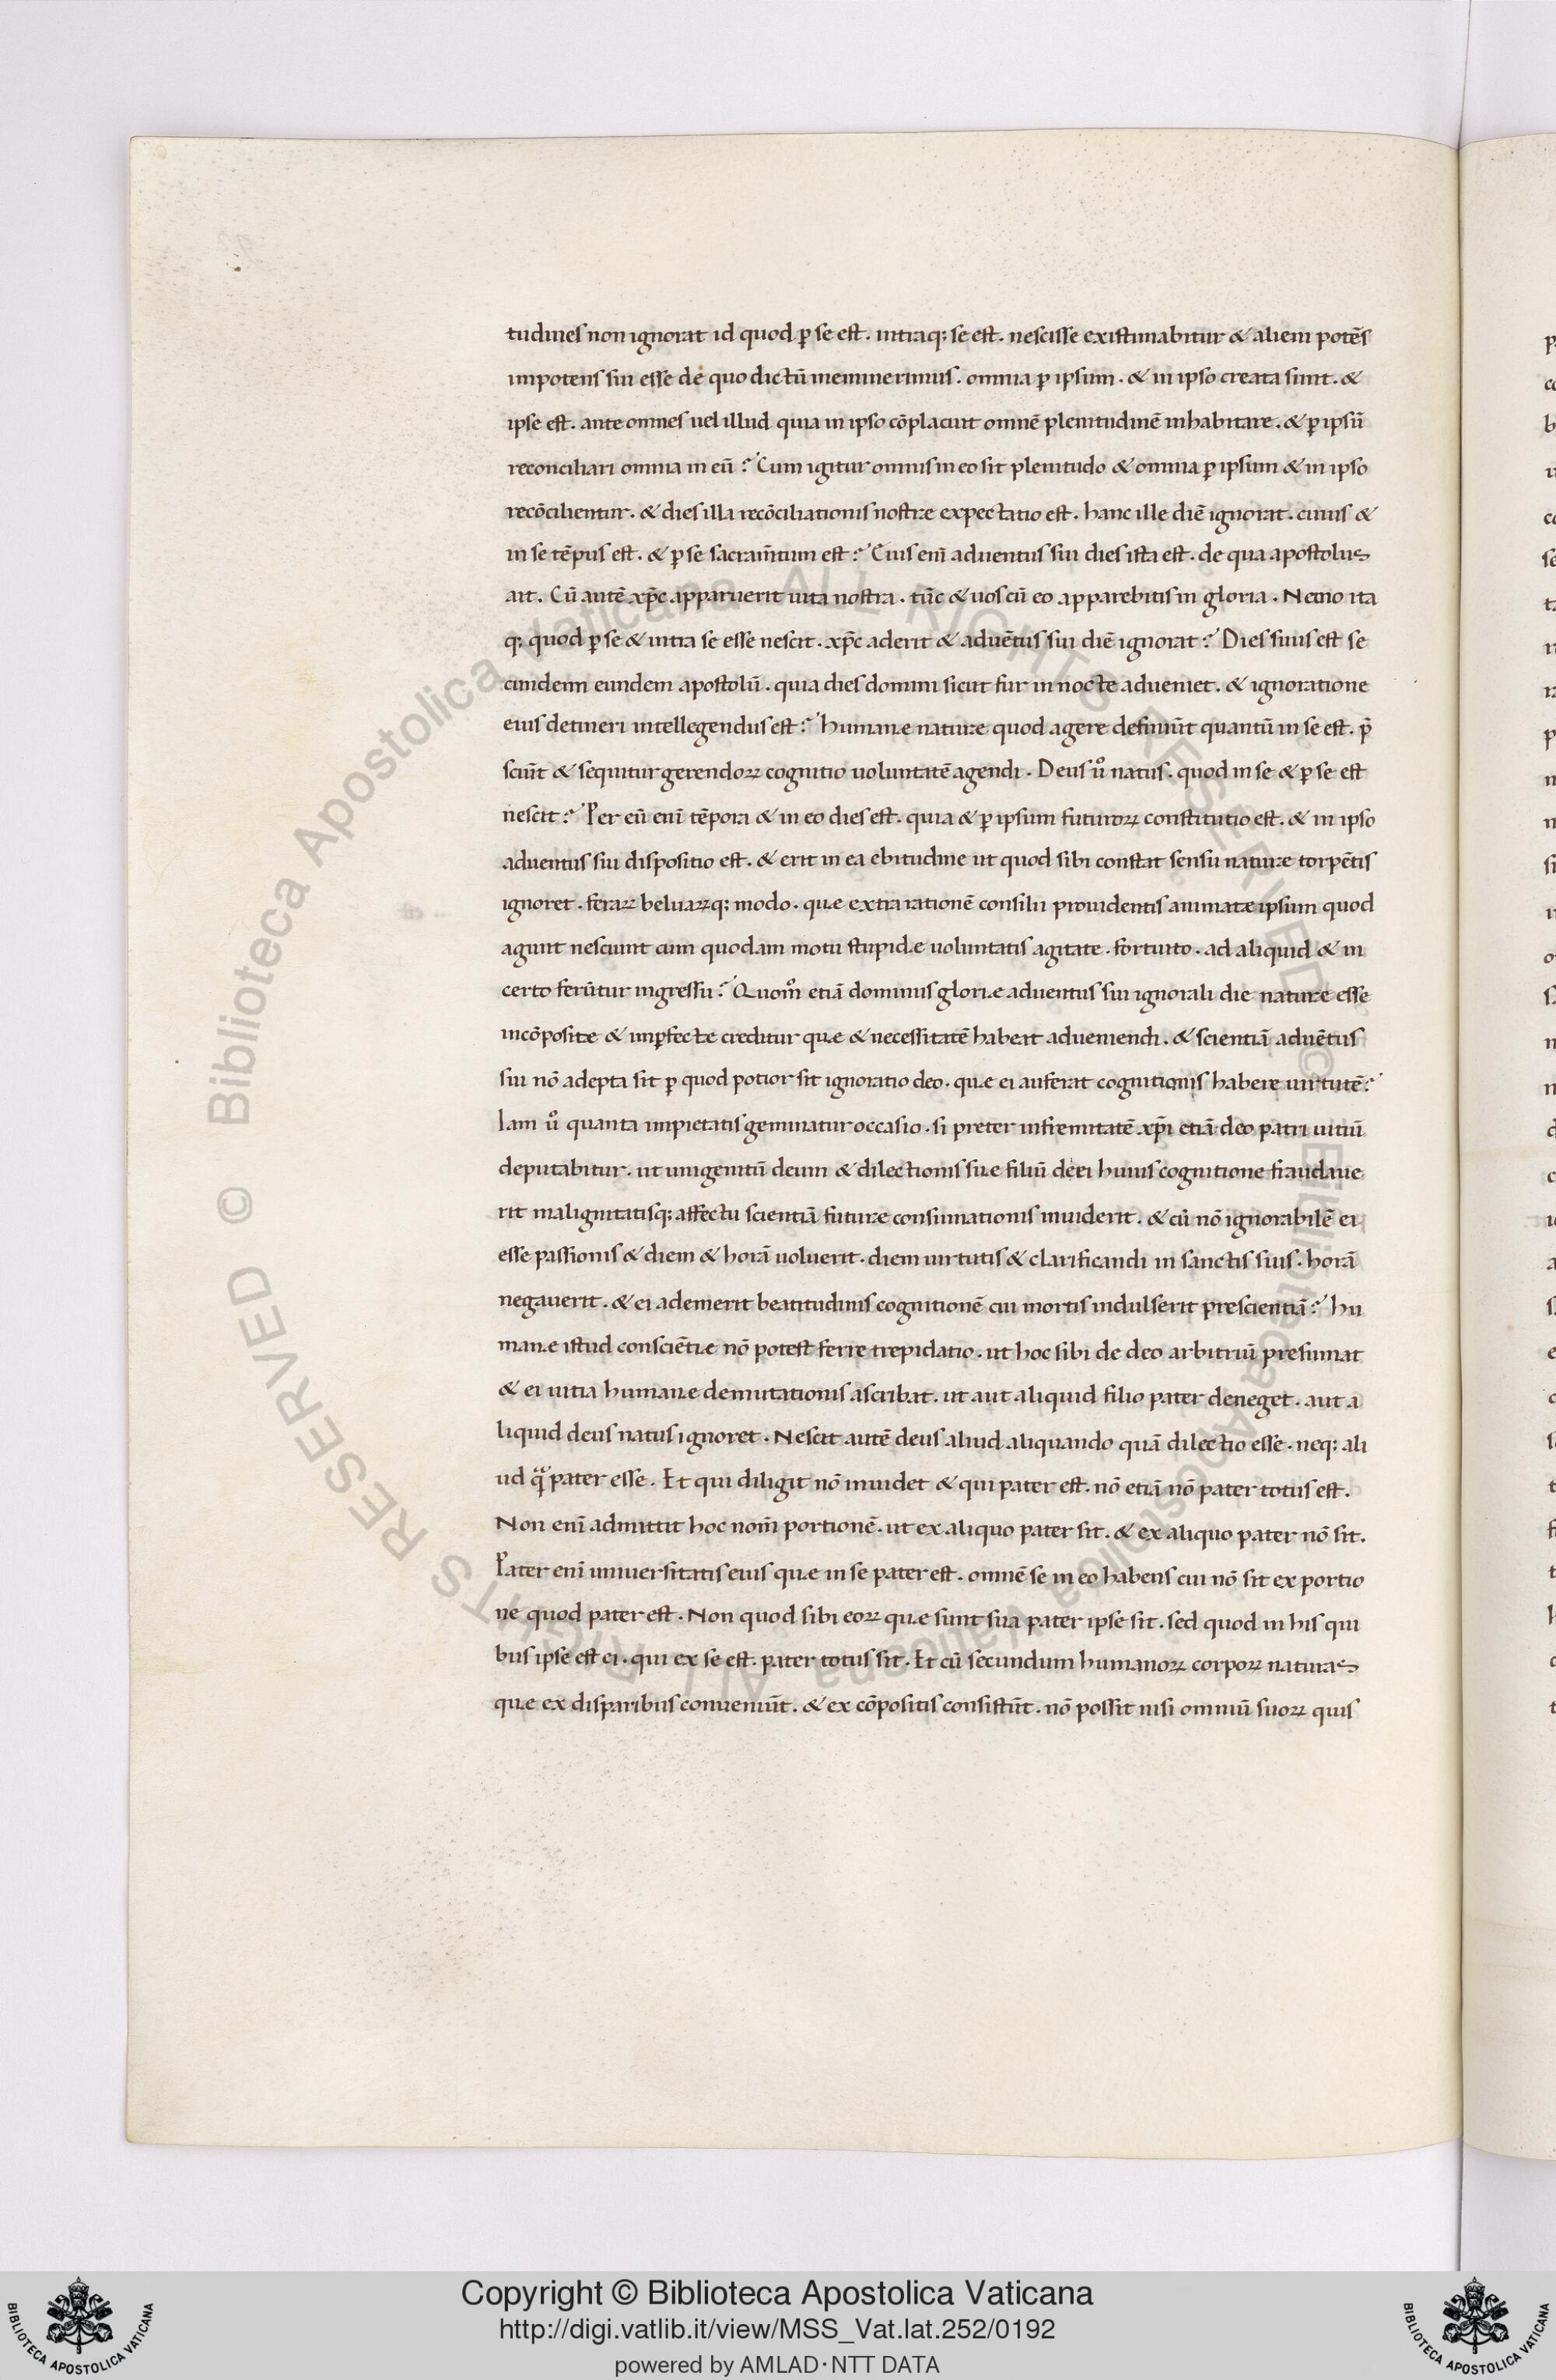 tudines non ignorat id quod ꝑ se est. intraq; se est. nescisse existimabitur & alieni potẽs
impotens sui esse de quo dictũ meminerimus. omnia ꝑ ipsum. & in ipso creata sunt. &
ipse est. ante omnes uel illud quia in ipso cõplacuit omnẽ plenitudinẽ inhabitare. & ꝑ ipsũ
reconciliari omnia in eũ? Cum igitur omnis in eo sit plenitudo & omnia ꝑ ipsum & in ipso
recõcilientur. & dies illa recõciliationis nostræ expectatio est. hanc ille diẽ ignorat. cuius &
in se tẽpus est. & ꝑ se sacram̃tum est? Eius eni͂ aduentus sui dies ista est. de qua apostolus
ait. Cũ autẽ xp̃c apparuerit uita nostra. tũc & uos cũ eo apparebitis in gloria. Nemo ita
q; quod ꝑ se & intra se esse nescit. xp̃c aderit & aduẽtus sui diẽ ignorat? Dies suus est se
cundem eundem apostolũ. quia dies domini sicut fur in nocte adueniet. & ignoratione
eius detineri intellegendus est? humanæ naturæ quod agere definiũt quantũ in se est. p̃
sciũt & sequitur gerendoꝝ cognitio uoluntatẽ agendi. Deus ů natus. quod in se & ꝑ se est
nescit? Per eũ eni͂ tẽpora & in eo dies est. quia & ꝑ ipsum futuroꝝ constitutio est. & in ipso
aduentus sui dispositio est. & erit in ea ebitudine ut quod sibi constat sensu naturæ torpẽtis
ignoret. feraꝝ beluaꝝq; modo. quæ extra rationẽ consilii prouidentis animatæ ipsum quod
agunt nesciunt cum quodam motu stupidæ uoluntatis agitate. fortuito. ad aliquid & in
certo ferũtur ingressu? Quom̊ etiã dominus gloriæ aduentus sui ignorali die naturæ esse
incõpositæ & imꝑfectæ creditur quæ & necessitatẽ habeat adueniendi. & scientiã aduẽtus
sui nõ adepta sit ꝑ quod potior sit ignoratio deo. quæ ei auferat cognitionis habere uirtutẽ?
Iam ů quanta impietatis geminatur occasio. si preter infirmitatẽ xp̃i etiã deo patri uitiũ
deputabitur. ut unigenitũ deum & dilectionis suæ filiũ dei huius cognitione fraudaue
rit malignitatisq; affectu scientiã futuræ consummationis inuiderit. & cũ nõ ignorabilẽ ei
esse passionis & diem & horã uoluerit. diem uirtutis & clarificandi in sanctis suis. horã
negauerit. & ei ademerit beatitudinis cognitionẽ cui mortis indulserit prescientiã? hu
manæ istud consciẽtiæ nõ potest ferre trepidatio. ut hoc sibi de deo arbitriũ presumat
& ei uitia humanæ demutationis ascribat. ut aut aliquid filio pater deneget. aut a
liquid deus natus ignoret. Nescit autẽ deus aliud aliquando quã dilectio esse. neq; ali
ud q̃ pater esse. Et qui diligit nõ inuidet & qui pater est. nõ etiã nõ pater totus est.
Non eni͂ admittit hoc nom̃ portionẽ. ut ex aliquo pater sit. & ex aliquo pater nõ sit.
Pater eni͂ uniuersitatis eius quæ in se pater est. omnẽ se in eo habens cui nõ sit ex portio
ne quod pater est. Non quod sibi eoꝝ quæ sunt sua pater ipse sit. sed quod in his qui
bus ipse est ei. qui ex se est. pater totus sit. Et cũ secundum humanoꝝ corpoꝝ naturas
quæ ex disparibus conueniũt. & ex cõpositis consistũt. nõ possit nisi omniũ suoꝝ quis
Copyright © Biblioteca Apostolica Vaticana
http://digi.vatlib.it/view/MSS_Vat.lat.252/0192
powered by AMLAD·NTT DATA